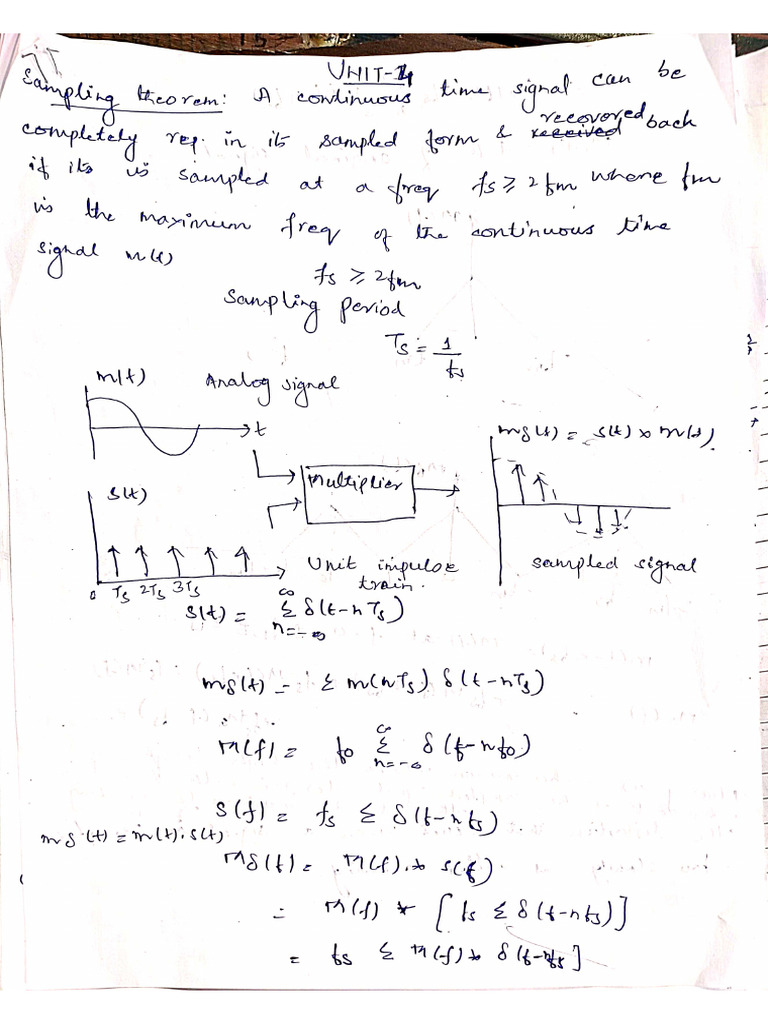 UNIT-4
Sampling theorem: A continuous time signal can be
completely rep. in its sampled form & received recovered back
if its is sampled at a freq fs ≥ 2fm where fm
is the maximum freq of the continuous time
signal m(t)
fs ≥ 2fm
Sampling period
Ts = 1/fs
m(t) Analog signal
t
mδ(t) = s(t) × m(t).
Multiplier
s(t)
Unit impulse train.
0 Ts 2Ts 3Ts
sampled signal
s(t) = ∞ Σ n=-∞ δ(t-nTs)
mδ(t) = Σ m(nTs) δ(t-nTs)
M(f) = fo ∞ Σ n=-∞ δ(f-nfo)
S(f) = fs Σ δ(f-nfs)
mδ(t) = m(t).s(t)
Mδ(f) = M(f).* s(f)
= M(f) * [fs Σ δ(f-nfs)]
= fs Σ M(f) * δ(f-nfs]